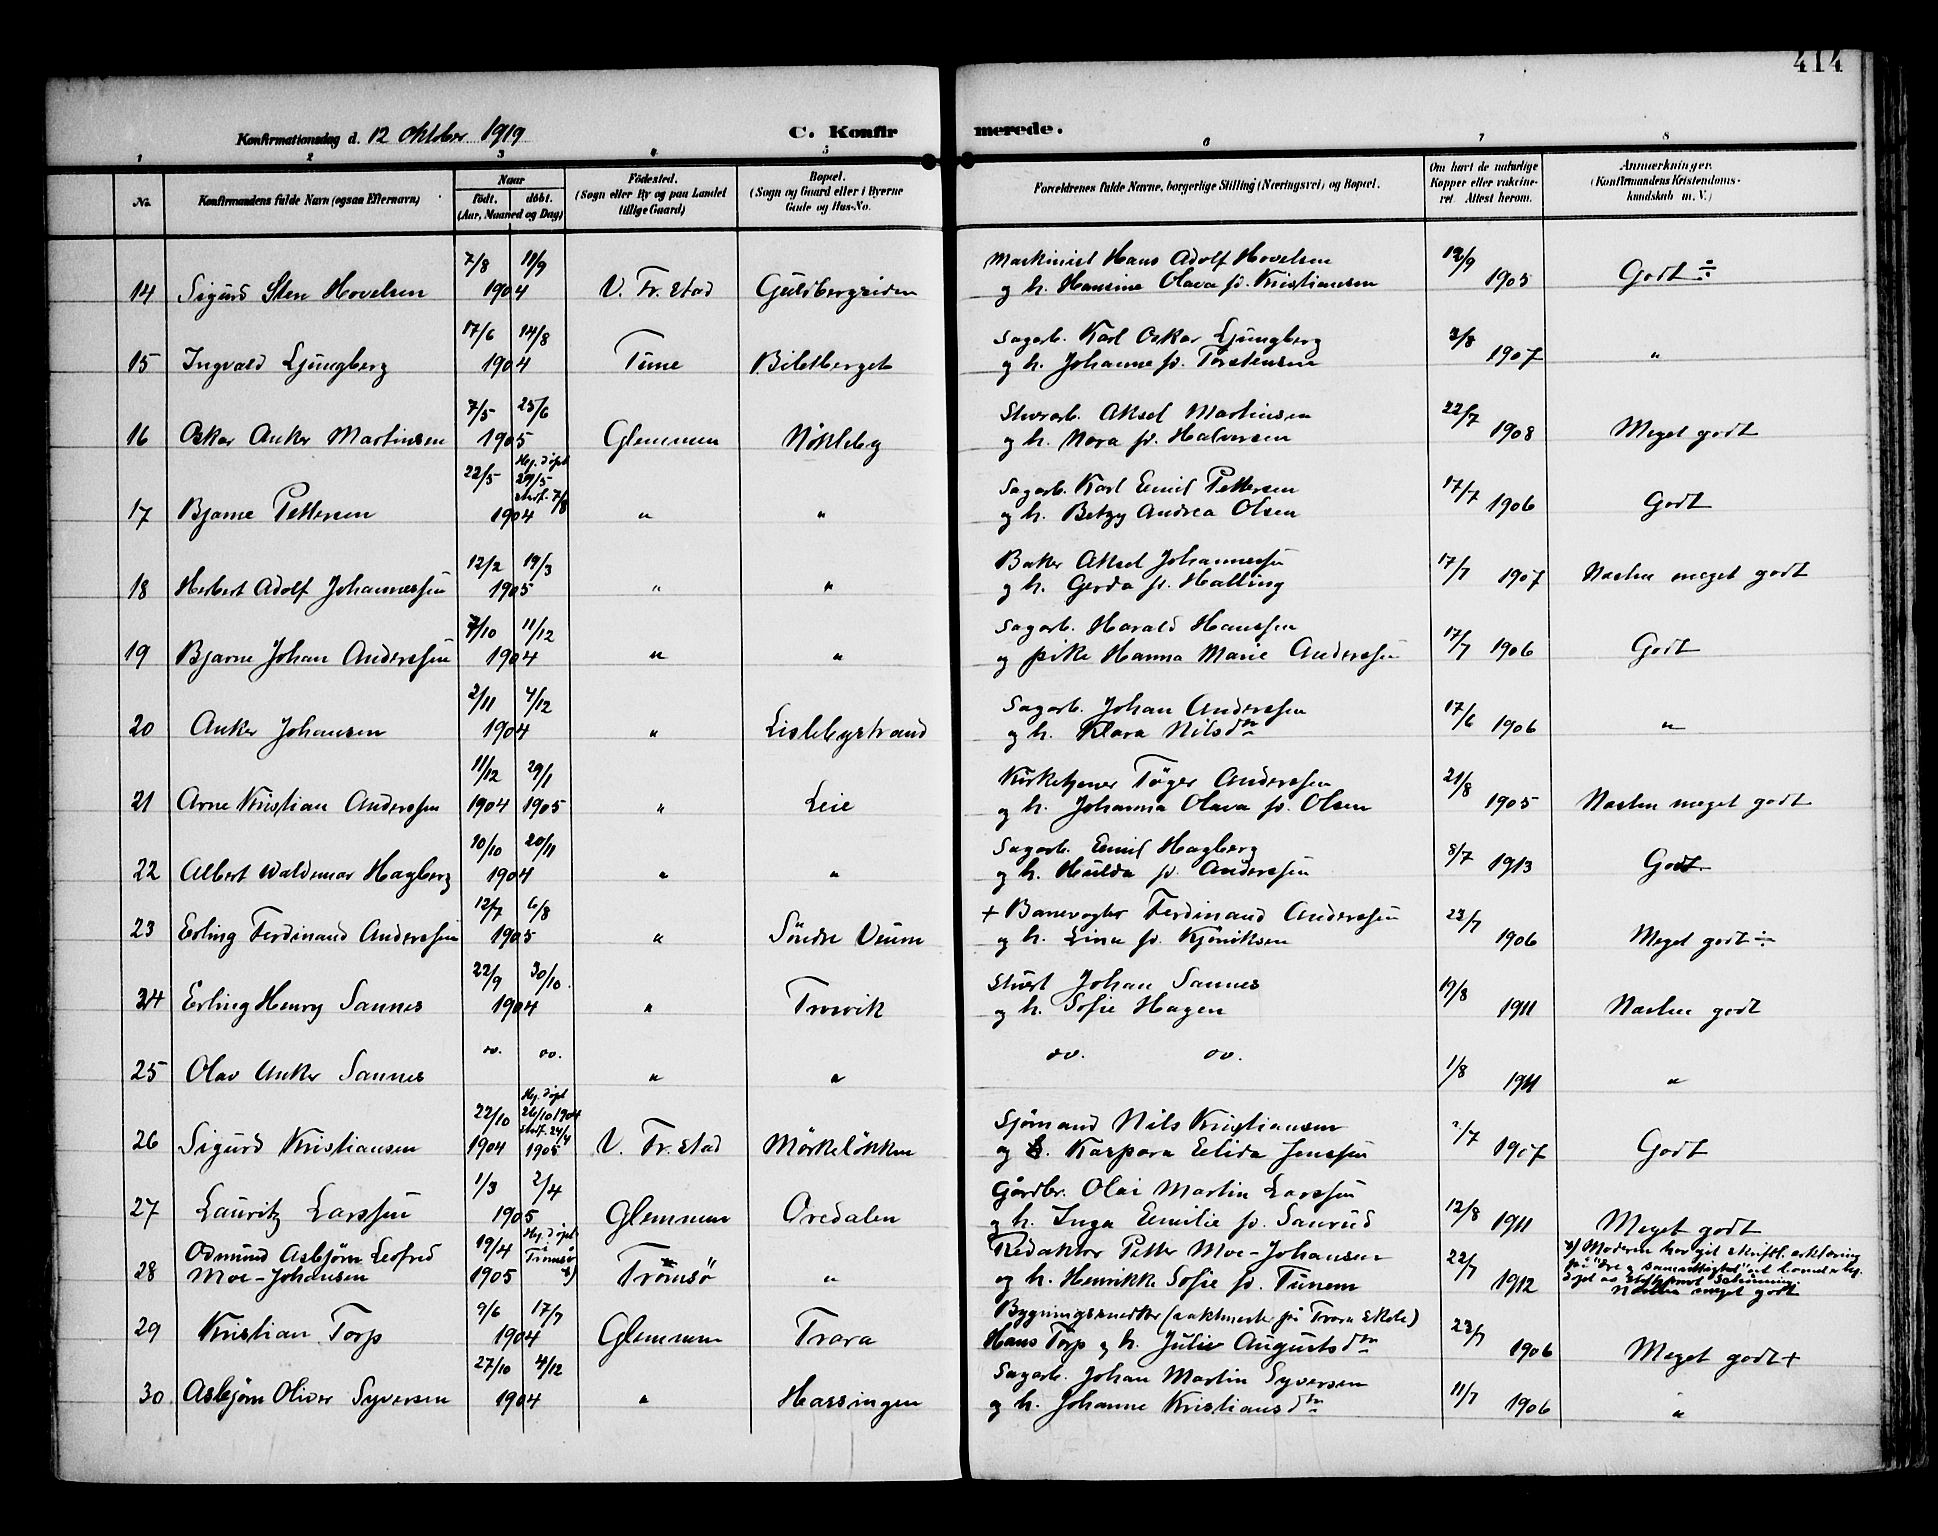 414
Konfirmationsdag d. 12 Oktober 1919
C. Konfir merede.
1 2 3 4 5 6 7 8
No.
Konfirmandens fulde Navn (ogsaa Efternavn)
Naar
født. døbt.
(Aar, Maaned og Dag)
Fødested.
(Sogn eller By og paa Landet
tillige Gaard)
Bopæl.
(Sogn og Gaard eller i Byerne
Gade og Hus-No.
Forældrenes fulde Navne, borgerlige Stilling (Næringsvei) og Bopæl.
Om havt de naturlige
Kopper eller vakcine-
ret. Attest herom.
Anmærkninger.
(Konfirmandens Kristendoms-
kundskab m. V.)
7/8 11/9 Maskinist Hans Adolf Hovelsen 12/9
14 Sigurd Sten Hovelsen 1904 V. Fr.stad Guldbergsiden og h. Hansine Olava f. Kristiansen 1905 Godt ÷
17/6 14/8 Sagarb. Karl Oskar Ljungberg 2/8
15 Ingvald Ljungberg 1904 Tune Bildtberget og h. Johanne f. Torstensen 1907 "
7/5 25/6 Stuerarb. Aksel Martinsen 22/7
16 Oskar Anker Martinsen 1905 Glemmen Nökleby og h. Nora f. Halvorsen 1908 Meget godt
22/5 Hj. döpt 29/5 stadf. 7/8 Sagarb. Karl Emil Pettersen 17/7
17 Bjarne Pettersen 1904 " " og h. Betzy Andrea Olsen 1906 Godt
12/2 19/3 Baker Aksel Johannessen 17/7
18 Herbert Adolf Johannessen 1905 " " og h. Gerda f. Halling 1907 Næsten meget godt
7/10 11/12 Sagarb. Harald Hanssen 17/7
19 Bjarne Johan Anderssen 1904 " " og pike Hanna Marie Anderssen 1906 Godt
2/11 4/12 Sagarb. Johan Anderssen 17/6
20 Anker Johansen 1904 " Lislebystrand og h. Klara Nilsdtr 1906 "
11/12 29/1 Kirketjener Töger Anderssen 21/8
21 Arne Kristian Anderssen 1904 1905 " Leie og h. Johanna Olava f. Olsen 1905 Næsten meget godt
10/10 20/11 Sagarb. Emil Hagberg 8/7
22 Albert Waldemar Hagberg 1904 " " og h. Hulda f. Anderssen 1913 Godt
12/7 6/8 + Banevogter Ferdinand Anderssen 22/7
23 Erling Ferdinand Anderssen 1905 " Söndre Veum og h. Lina f. Kjöniksen 1906 Meget godt ÷
22/9 30/10 Johan Sannes 19/8
24 Erling Henry Sannes 1904 " Trosvik og h. Sofie Hagen 1911 Næsten godt
do. do. do. do. 1/8
25 Olav Anker Sannes " " 1911 "
22/10 Hj. döpt 26/10 1904 stadf. 24/4 Sjömand Nils Kristiansen
26 Sigurd Kristiansen 1904 1905 V. Fr.stad Mörkelökken og h. Kaspara Elida Jenssen 1907 Godt
1/3 2/4 Gårdbr. Olai Martin Larssen 12/8
27 Lauritz Larssen 1905 Glemmen Oredalen og h. Inga Emilie f. Saurud 1911 Meget godt
Odmund Asbjörn Leofred 19/4 Hj. döpt Tromsö *) Redaktör Petter Moe-Johansen 22/7 *) Moderen har git skriftl. erklæring
28 Moe-Johansen 1905 Tromsö " og h. Henrikke Sofie f. Tunem 1912 på "ære og samvittighet" at barnet er hj.
Næsten meget godt
9/6 17/7 Bygningssnedker (vaktmester på Trara skole) 22/7
29 Kristian Torp 1904 Glemmen Trara Hans Torp og h. Julie Augustsdtr 1906 Meget godt +
27/10 4/12 Sagarb. Johan Martin Syversen 11/7
30 Asbjörn Oliver Syversen 1904 " Hassingen og h. Johanne Kristiansdtr 1906 "